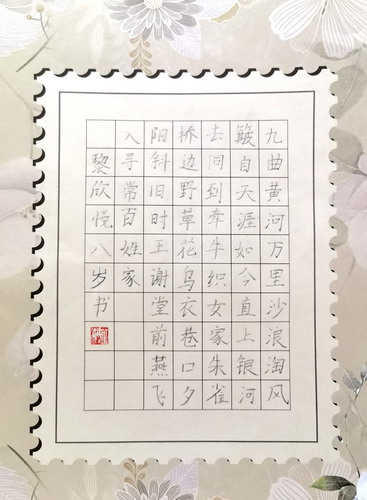 九曲黄河万里沙浪淘风
簸自天涯如今直上银河
去同到牵牛织女家朱雀
桥边野草花乌衣巷口夕
阳斜旧时王谢堂前燕飞
入寻常百姓家
黎欣悦八岁书